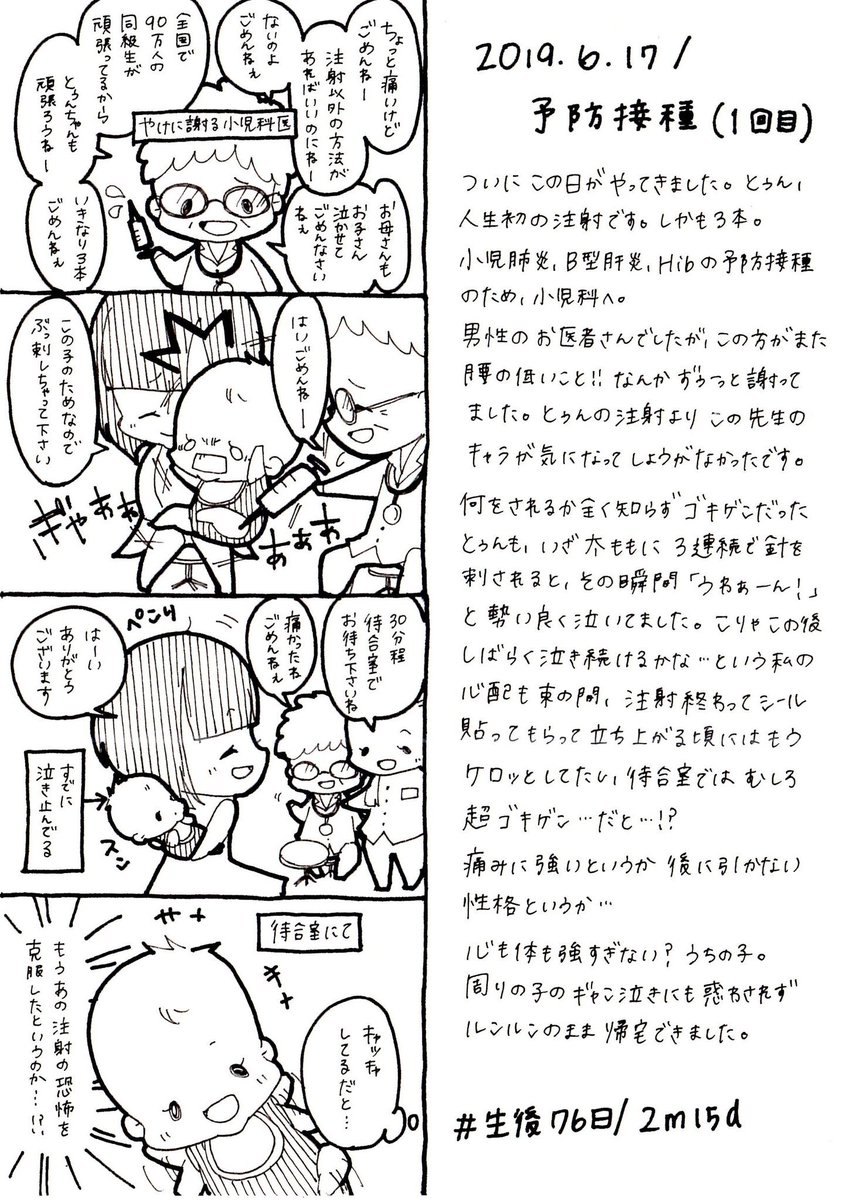 ちょっと痛いけど
ごめんねー
注射以外の方法が
あればいいのにねー
ないのよ
ごめんねぇ
全国で
90万人の
同級生が
頑張ってるから
とぅんちゃんも
頑張ろうねー
やけに謝る小児科医
お母さんも
お子さん
泣かせて
ごめんなさい
ねぇ
いきなり3本
ごめんねぇ
はいごめんねー
この子のためなので
ぶっ刺しちゃって下さい
ぎゃあぁぁ
あぁぁ
30分程
待合室で
お待ち下さいね
痛かったね
ごめんねぇ
ぺこり
はーい
ありがとう
ございます
すでに
泣き止んでる
スン
待合室にて
キャッキャ
してるだと…
もうあの注射の恐怖を
克服したというのか…!?
2019.6.17/
予防接種(1回目)
ついにこの日がやってきました。とぅん、
人生初の注射です。しかも3本。
小児肺炎、B型肝炎、Hibの予防接種
のため、小児科へ。
男性のお医者さんでしたが、この方がまた
腰の低いこと!! なんかずぅーっと謝って
ました。とぅんの注射よりこの先生の
キャラが気になってしょうがなかったです。
何をされるか全く知らずゴキゲンだった
とぅんも、いざ太ももに3連続で針を
刺されると、その瞬間「うわぁーん!」
と勢い良く泣いてました。こりゃこの後
しばらく泣き続けるかな…という私の
心配も束の間、注射終わってシール
貼ってもらって立ち上がる頃にはもう
ケロッとしてたし、待合室ではむしろ
超ゴキゲン…だと…!?
痛みに強いというか後に引かない
性格というか…
心も体も強すぎない?うちの子。
周りの子のギャン泣きにも惑わされず
ルンルンのまま帰宅できました。
#生後76日/2m15d